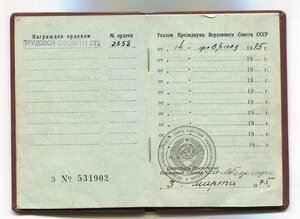 Награжден орденом
№ ордена
ТРУДОВОЙ СЛАВЫ III СТ.
2358
З № 531902
Указом Президиума Верховного Совета СССР
от 4 февраля 1975 г.
от 19 г.
от 19 г.
от 19 г.
от 19 г.
от 19 г.
от 19 г.
Секретарь Президиума
Верховного Совета СССР
3 марта 1975